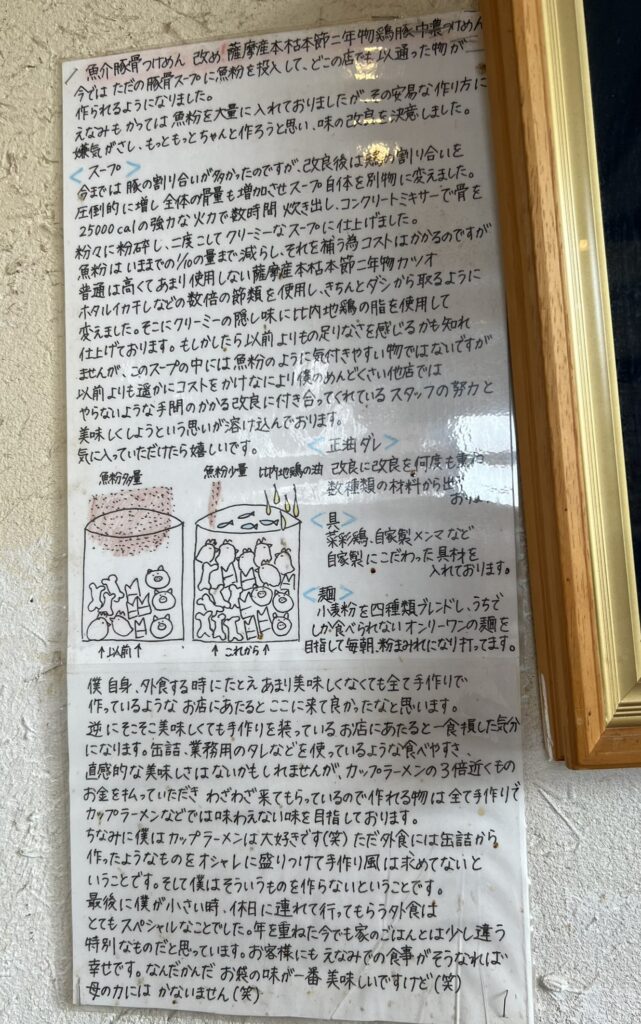 魚介豚骨つけめん 改め 薩摩産本枯本節二年物鶏豚中濃つけめん
今では ただの豚骨スープに魚粉を投入して、どこの店でも 似通った物が
作られるようになりました。
えなみも かつては 魚粉を大量に入れておりましたが その安易な作り方に
嫌気がさし、もっともっとちゃんと作ろうと思い、味の改良を決意しました。
<スープ>
今までは 豚の割り合いが多かったのですが、改良後は 鶏の割り合いを
圧倒的に増し 全体の骨量も増加させスープ自体を別物に変えました。
25000calの強力な火力で数時間 炊き出し、コンクリートミキサーで骨を
粉々に粉砕し、二度こしてクリーミーなスープに仕上げました。
魚粉は いままでの1/10の量まで減らし、それを補う為 コストはかかるのですが
普通は高くて あまり使用しない薩摩産本枯本節二年物カツオ
ホタルイカ干しなどの数倍の節類を使用し、きちんとダシから取るように
変えました。そこにクリーミーの隠し味に比内地鶏の脂を使用して
仕上げております。もしかしたら以前よりもの足りなさを感じるかも知れ
ませんが、このスープの中には魚粉のように気付きやすい物ではないですが
以前よりも遥かにコストをかけなにより僕のめんどくさい他店では
やらないような手間のかかる改良に付き合ってくれているスタッフの努力と
美味しくしようという思いが溶け込んでおります。
気に入っていただけたら嬉しいです。
<正油ダレ>
改良に改良を何度も重ね
数種類の材料から出
おり
魚粉多量
魚粉少量
比内地鶏の油
↑以前↑
↑これから↑
<具>
菜彩鶏、自家製メンマなど
自家製にこだわった具材を
入れております。
<麺>
小麦粉を四種類ブレンドし、うちで
しか食べられないオンリーワンの麺を
目指して毎朝、粉まみれになり打ってます。
僕自身、外食する時にたとえ あまり美味しくなくても全て手作りで
作っているような お店にあたると ここに来て良かったなと思います。
逆に そこそこ美味しくても手作りを装っているお店にあたると一食損した気分
になります。缶詰、業務用のタレなどを使っているような食べやすさ、
直感的な美味しさはないかもしれませんが、カップラーメンの3倍近くもの
お金を払っていただき わざわざ来てもらっているので作れる物は全て手作りで
カップラーメンなどでは味わえない味を目指しております。
ちなみに僕はカップラーメンは大好きです(笑) ただ外食には缶詰から
作ったようなものをオシャレに盛りつけて手作り風は求めてないと
いうことです。そして僕はそういうものを作らないということです。
最後に僕が小さい時、休日に連れて行ってもらう外食は
とてもスペシャルなことでした。年を重ねた今でも家のごはんとは少し違う
特別なものだと思っています。お客様にも えなみでの食事がそうなれば
幸せです。なんだかんだ お袋の味が一番美味しいですけど(笑)
母の力には かないません(笑)